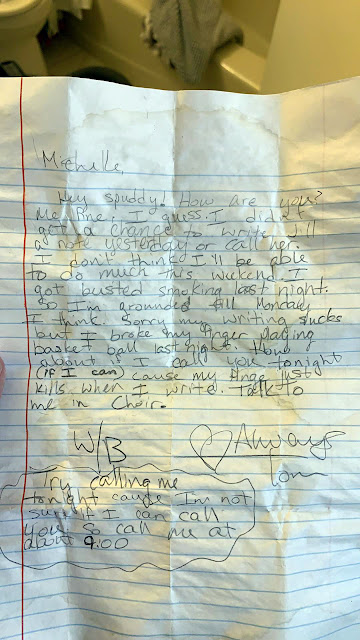 Michelle,
Hey spuddy! How are you?
Me fine, I guess. I didn't
get a chance to write
a note yesterday or call her.
I don't think I'll be able
to do much this wekend. I
got busted smoking last night.
So I'm grounded till Monday
I think. Sorry my writing sucks
but I broke my finger playing
basket ball last night. How
about I call you tonight
(if I can) cause my finger just
kills when I write. Talk to
me in Choir.
W/B
♡ Always
Tom
Try calling me
tonight cause I'm not
sure if I can call
you. So call me at
about 9:00